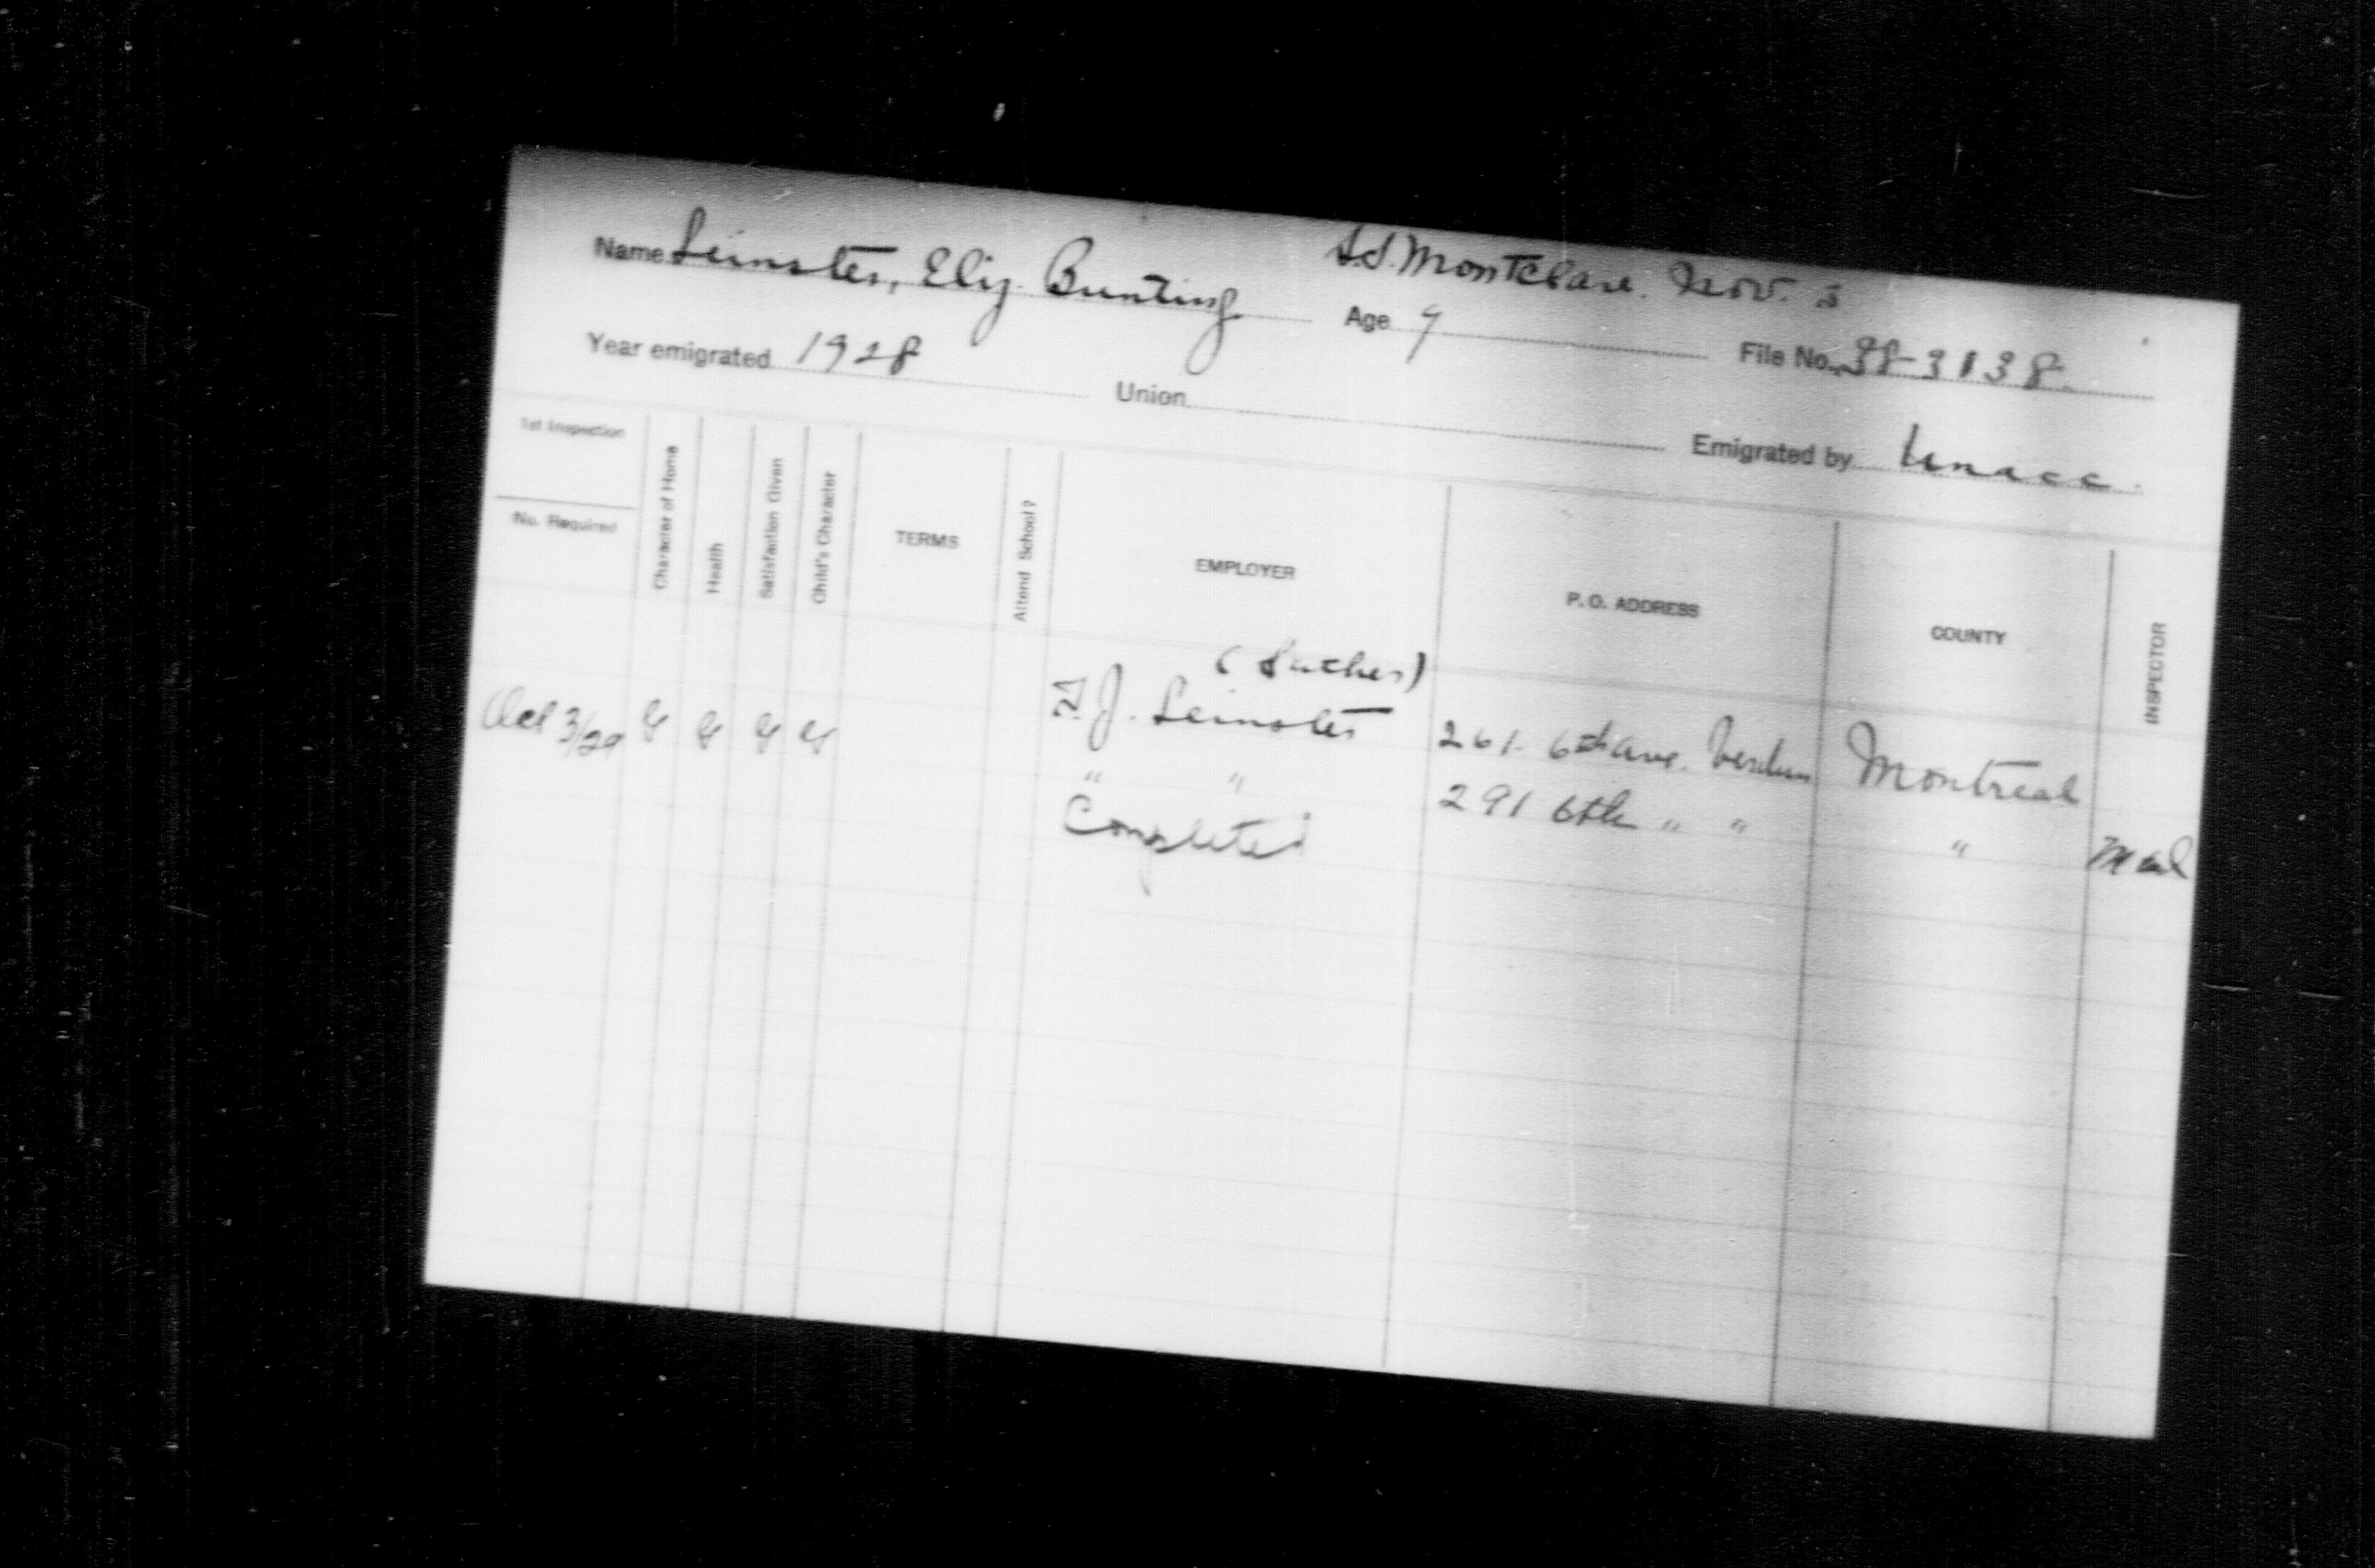 S.S. Montclare. Nov. 3
Name Leinster, Eliz. Bunting Age 9 File No. 38-3138
Year emigrated 1928 Union Emigrated by Unacc.
1st Inspection
No. Required
Character of Home
Health
Satisfaction Given
Child's Character
TERMS
Attend School?
EMPLOYER
P. O. ADDRESS
COUNTY
INSPECTOR
(Father)
Oct 3/29 G G G G J. Leinster 261 6th ave. Verdun Montreal
" " 291 6th " " "
Completed